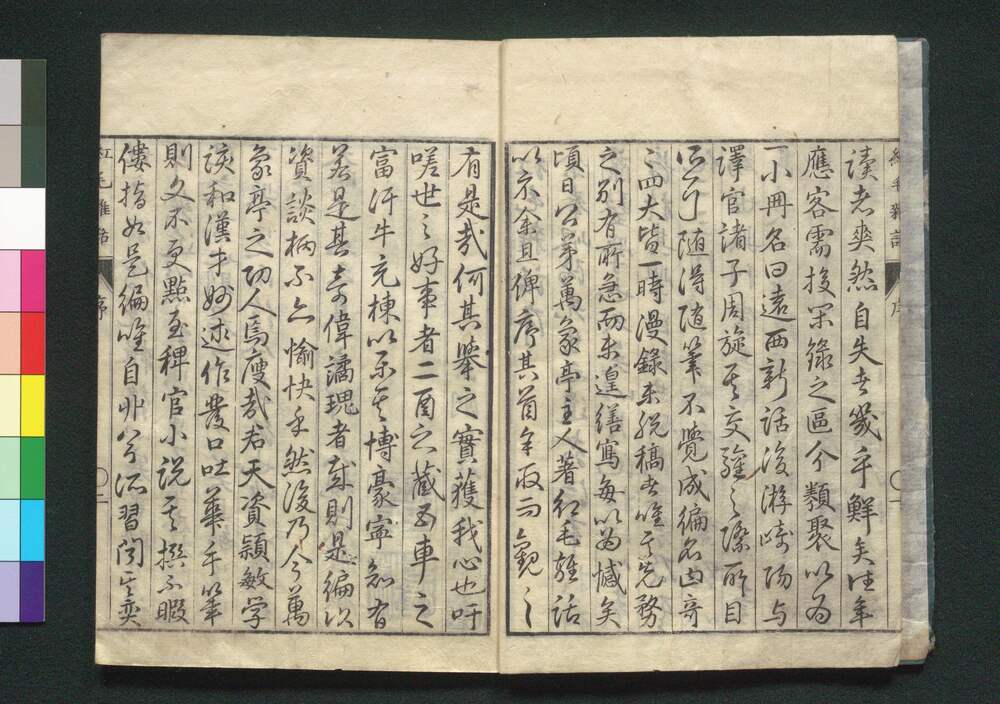 讀者爽然自失者幾乎鮮矣往年
應客需投宋錄之區分類聚以為
一小冊名曰遠西新話後游崎陽与
譯官諸子周旋其交雜之際所目
随得随筆不覺成編名曰
二四大皆一時漫錄未脱稿者唯其先務
之別有所急而未遑繕寫每以為憾矣
頃日公弟萬象亭主人著紅毛雜話
以示余且俾序其首余取而覽之
有是哉何其舉之實獲我心也吁
嗟世之好事者二酉之藏五車之
富汗牛充棟以示其博豪寧知有
若是其奇偉譎瑰者哉則是編以
資談柄不亦愉快乎然後乃今萬
象亭之功人焉廋哉若天資穎敏学
該和漢才妙述作發口吐華手筆
則文不更點至稗官小説其撰不暇
僂指如是編唯自非公所習聞其奕
紅毛雜話
序
紅毛雜話
序